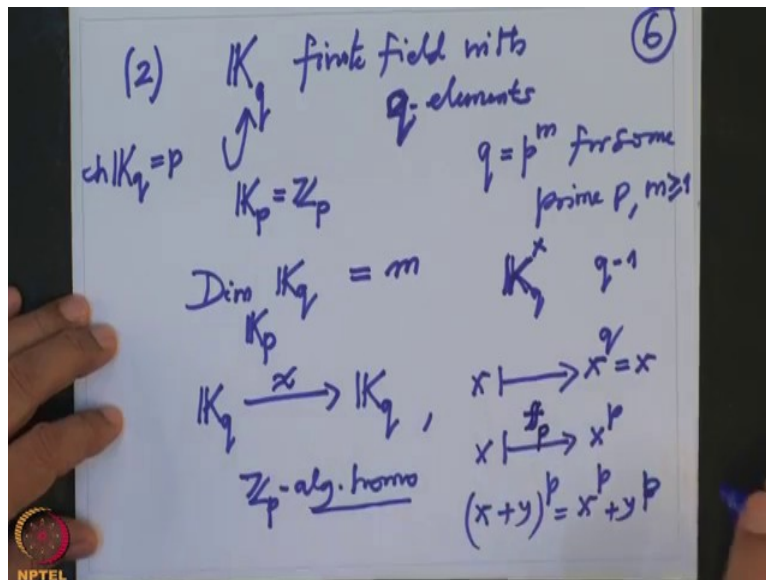 (2) 𝕂_q finite field with ⑥
q-elements
ch𝕂_q = p
q = p^m for some
prime p, m≥1
𝕂_p = ℤ_p
Dim_{𝕂_p} 𝕂_q = m 𝕂_q^× q-1
𝕂_q ⟶^≈ 𝕂_q , x ⟼ x^q = x
x ⟼^{f_p} x^p
ℤ_p-alg. homo (x+y)^p = x^p + y^p
NPTEL